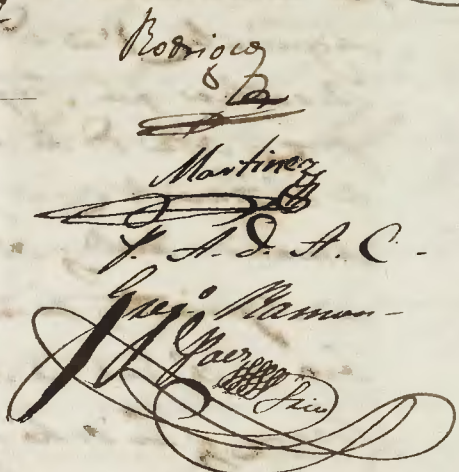 Rodriga
Martinez
P. A. D. A. C.
Greg.º Ramon
Paez
Srio